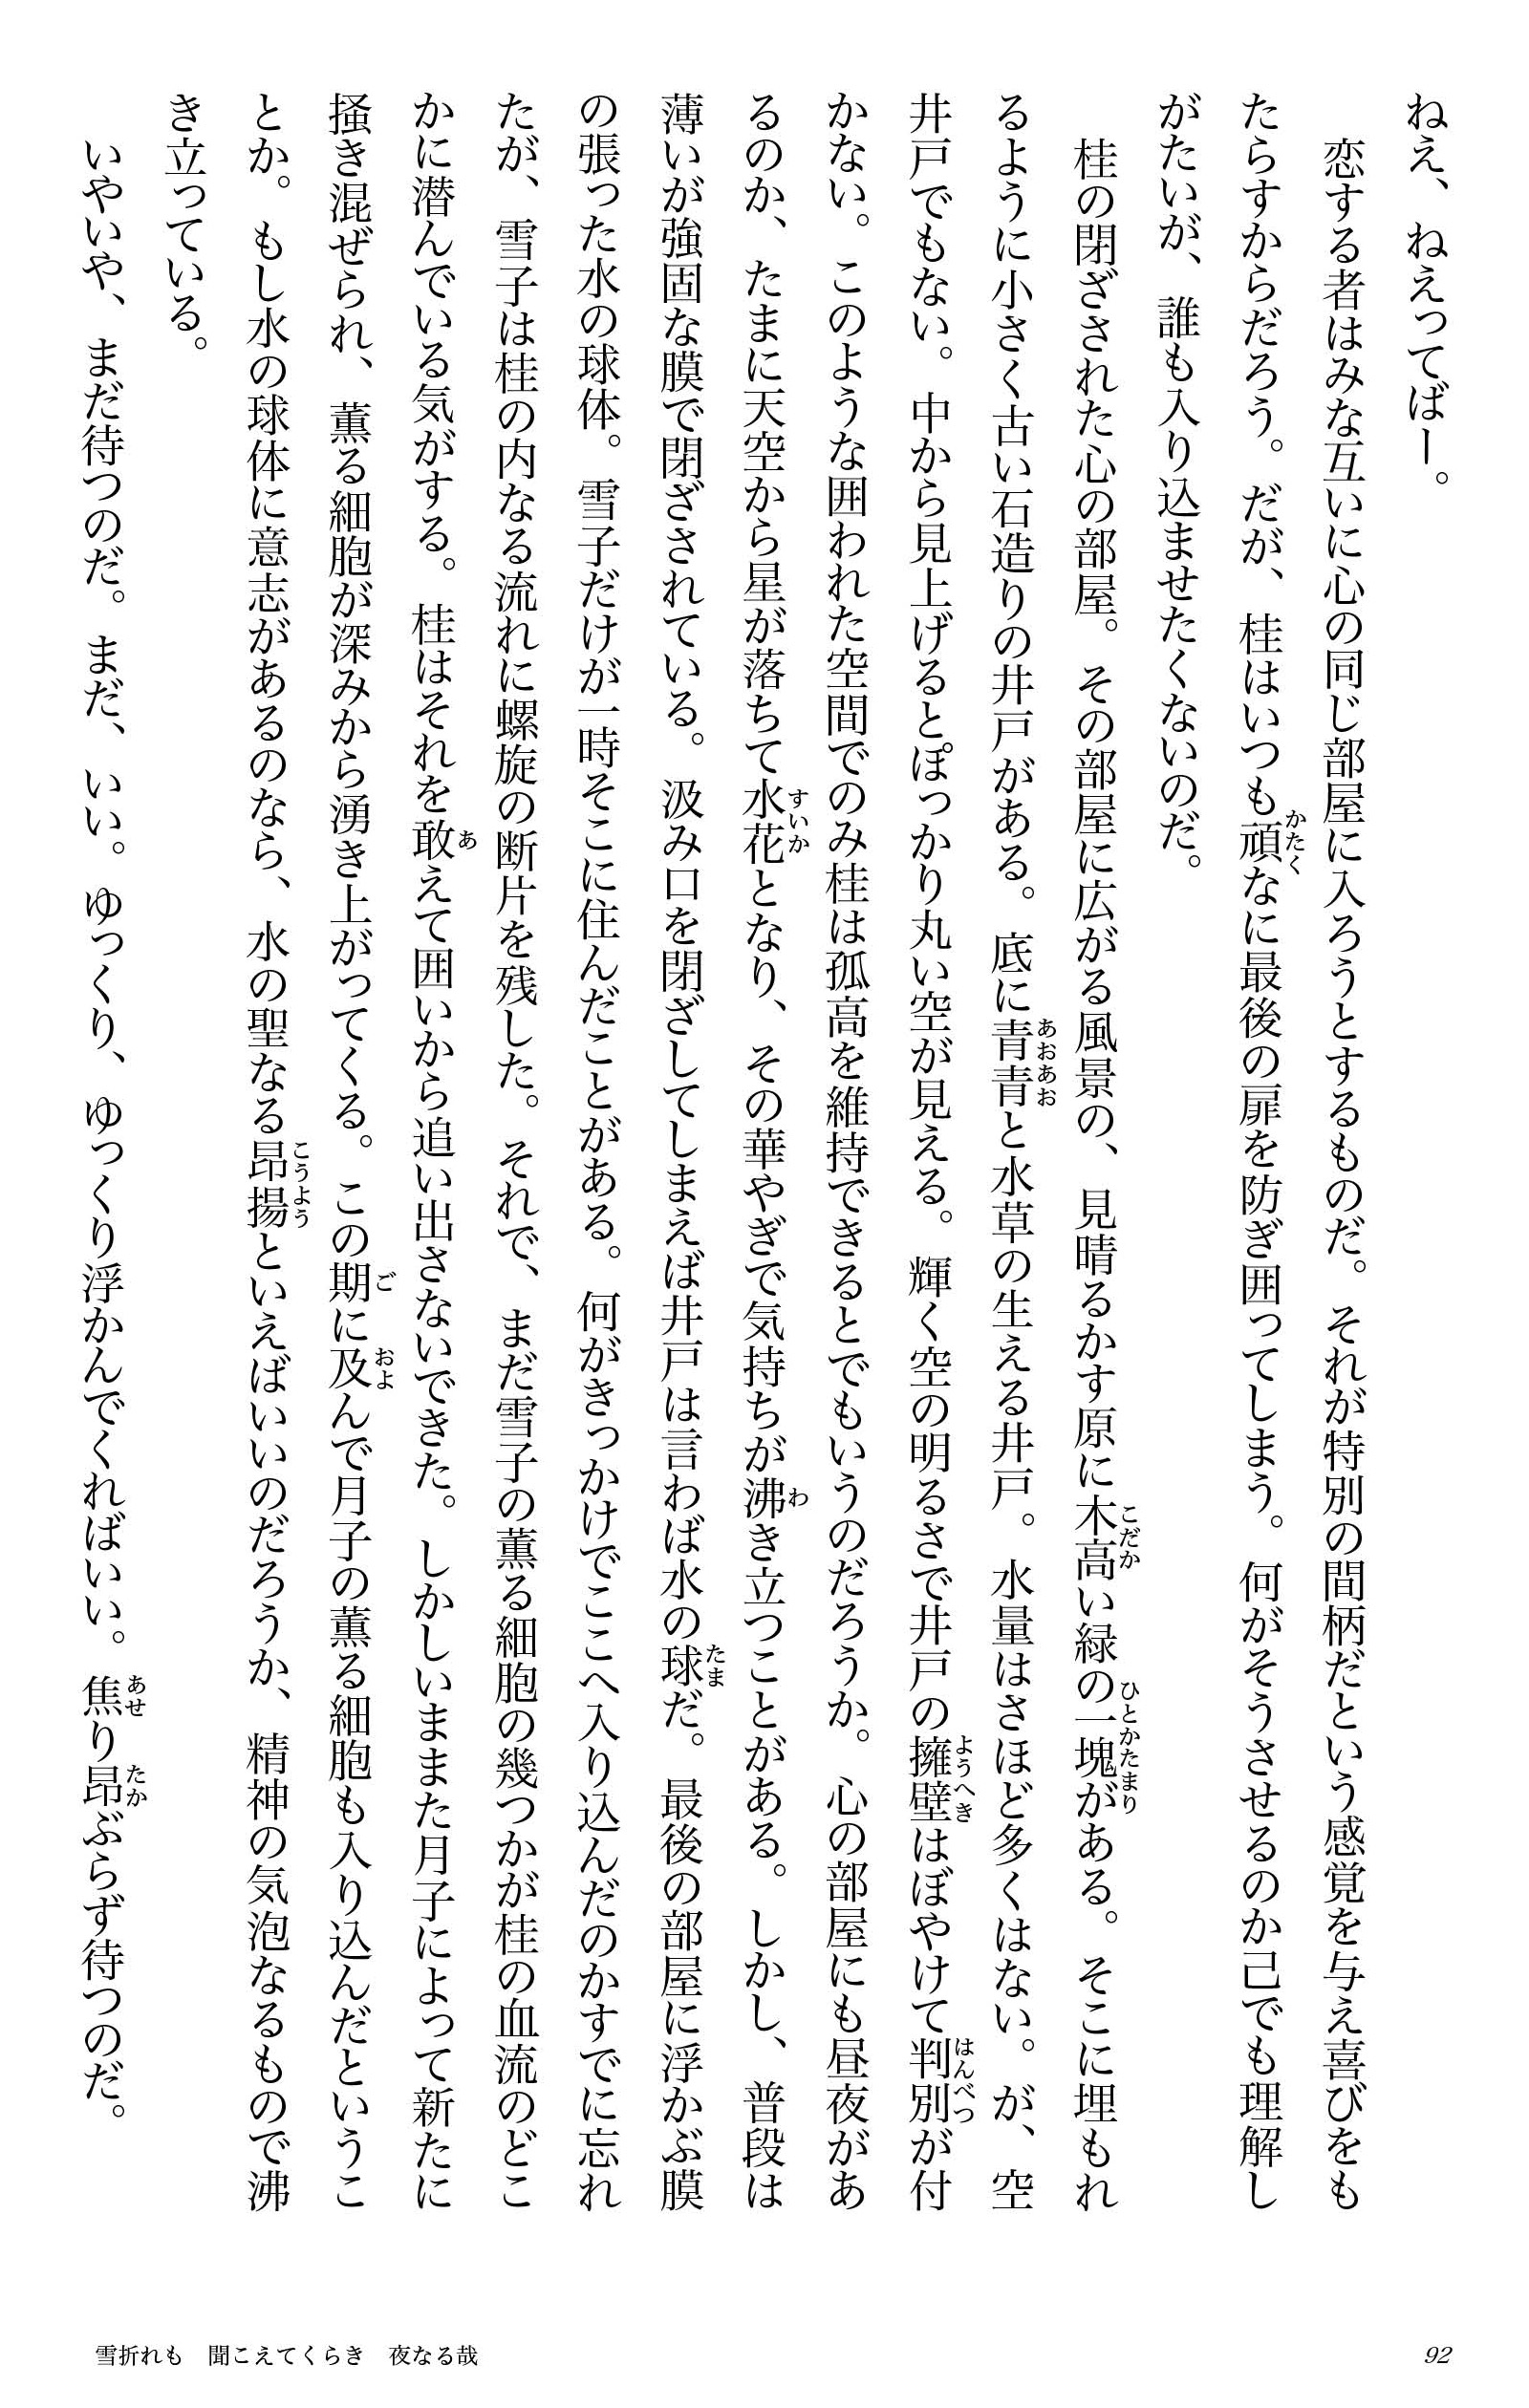 ねえ、ねえってばー。
　恋する者はみな互いに心の同じ部屋に入ろうとするものだ。それが特別の間柄だという感覚を与え喜びをも
たらすからだろう。だが、桂はいつも頑なに最後の扉を防ぎ囲ってしまう。何がそうさせるのか己でも理解し
がたいが、誰も入り込ませたくないのだ。
　桂の閉ざされた心の部屋。その部屋に広がる風景の、見晴るかす原に木高い緑の一塊がある。そこに埋もれ
るように小さく古い石造りの井戸がある。底に青青と水草の生える井戸。水量はさほど多くはない。が、空
井戸でもない。中から見上げるとぽっかり丸い空が見える。輝く空の明るさで井戸の擁壁はぼやけて判別が付
かない。このような囲われた空間でのみ桂は孤高を維持できるとでもいうのだろうか。心の部屋にも昼夜があ
るのか、たまに天空から星が落ちて水花となり、その華やぎで気持ちが沸き立つことがある。しかし、普段は
薄いが強固な膜で閉ざされている。汲み口を閉ざしてしまえば井戸は言わば水の球だ。最後の部屋に浮かぶ膜
の張った水の球体。雪子だけが一時そこに住んだことがある。何がきっかけでここへ入り込んだのかすでに忘れ
たが、雪子は桂の内なる流れに螺旋の断片を残した。それで、まだ雪子の薫る細胞の幾つかが桂の血流のどこ
かに潜んでいる気がする。桂はそれを敢えて囲いから追い出さないできた。しかしいままた月子によって新たに
掻き混ぜられ、薫る細胞が深みから湧き上がってくる。この期に及んで月子の薫る細胞も入り込んだというこ
とか。もし水の球体に意志があるのなら、水の聖なる昂揚といえばいいのだろうか、精神の気泡なるもので沸
き立っている。
　いやいや、まだ待つのだ。まだ、いい。ゆっくり、ゆっくり浮かんでくればいい。焦り昂ぶらず待つのだ。
雪折れも　聞こえてくらき　夜なる哉
92